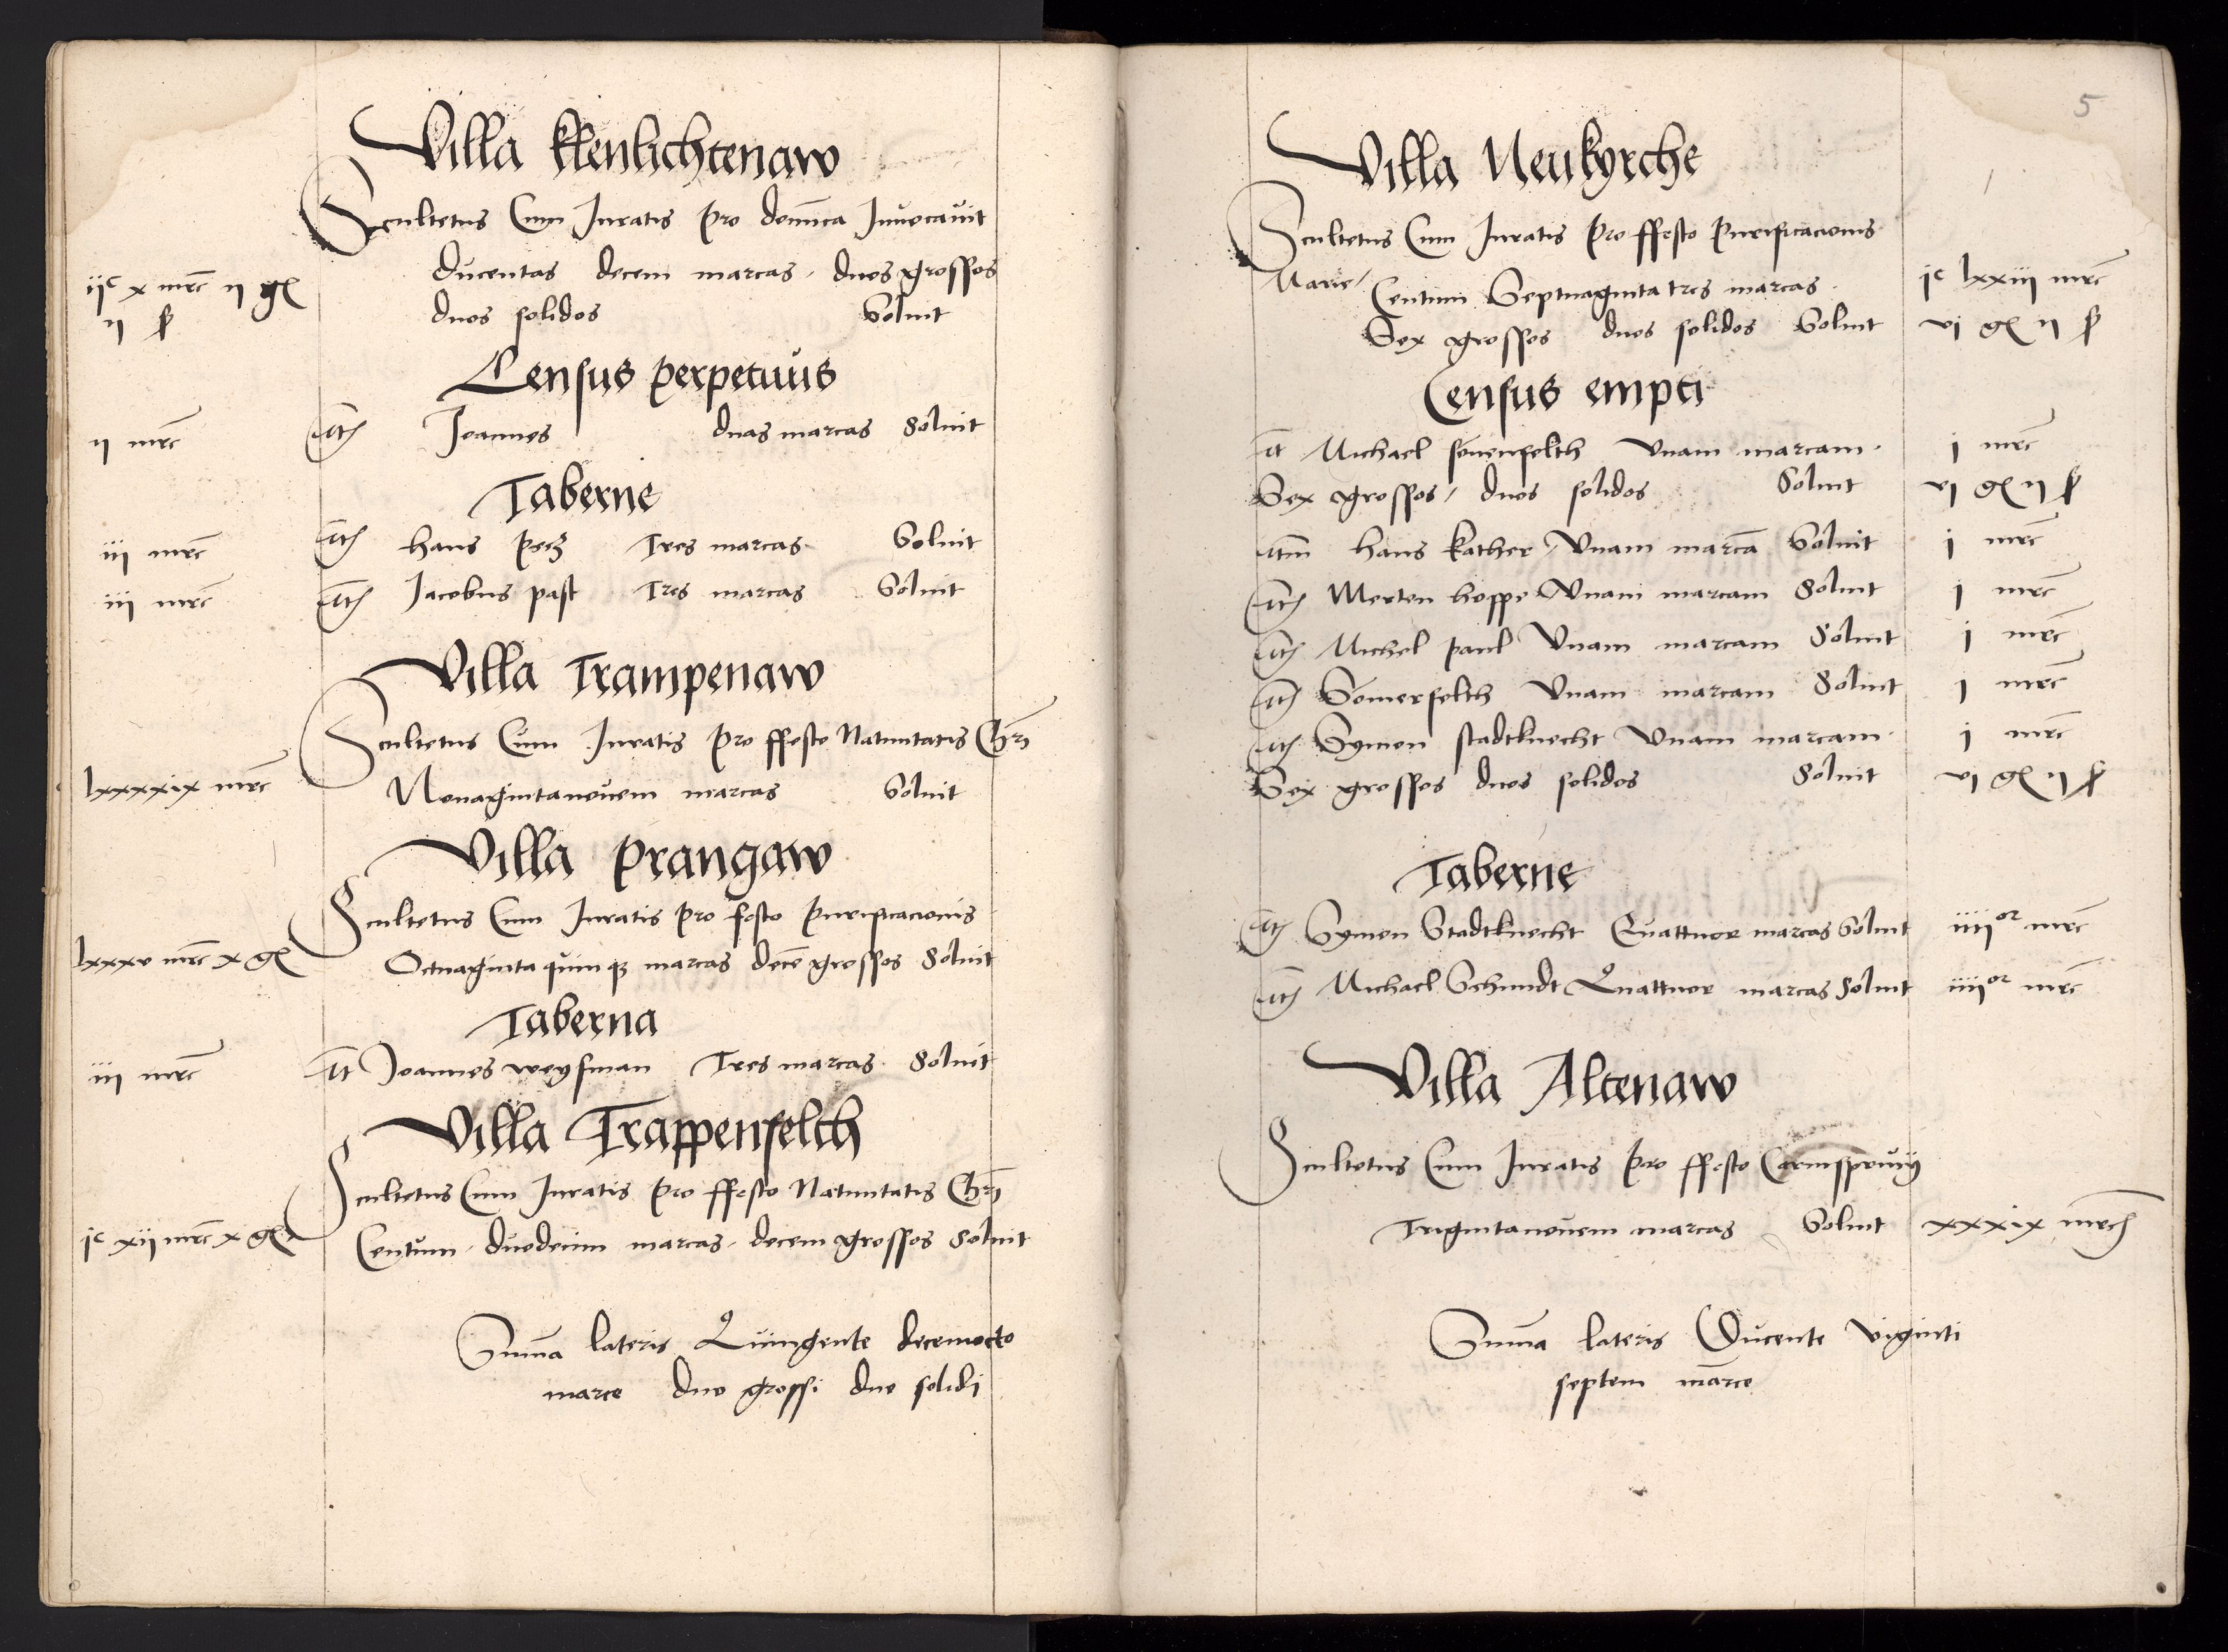 Villa klenlichtenaw
Scultetus Cum Iuratis pro domica Inuocauit
ijc x mrc ij gl ducentas decem marcas duos grossos
ij ß duos solidos Soluit
Census perpetuus
ij mrc Itm Joannes duas marcas Soluit
Taberne
iij mrc Itm hans Tres marcas Soluit
iij mrc Itm Jacobus past Tres marcas Soluit
Villa Trampenaw
Scultetus Cum Iuratis pro ffesto Natiuitatis Chri
lxxxxix mrc Nonagintanouem marcas Soluit
Villa prangaw
Scultetus Cum Iuratis pro festo purificacionis
lxxxv mrc x gl Octuaginta quinq marcas dece grossos Soluit
Taberna
iij mrc It Joannes weysman Tres marcas Soluit
Villa Trappenfelth
Scultetus Cum Iuratis pro ffesto Natiuitatis Chri
jc xij mrc x gl Centum duodecim marcas decem grossos Soluit
Suma lateris Quingente decemocto
marce duo grossi duo solidi
5
Villa Neukyrche
Scultetus Cum Iuratis pro ffesto purificacionis
Marie Centum Septuaginta tres marcas jc lxxiij mrc
Sex grossos duos solidos Soluit vj gl ij ß
Census empti
It Michael seuenfelth Vnam marcam j mrc
Sex grossos duos solidos Soluit vj gl ij ß
Itm hans kather Vnam marca Soluit j mrc
Itm Merten hoppe Vnam marcam Soluit j mrc
Itm Michel paul Vnam marcam Soluit j mrc
Itm Somerfelth Vnam marcam Soluit j mrc
Itm Symon stadtknecht Vnam marcam j mrc
Sex grossos duos solidos Soluit vj gl ij ß
Taberne
Itm Symon Stadtknecht Quattuor marcas Soluit iiijor mrc
Itm Michael Schmidt Quattuor marcas Soluit iiijor mrc
Villa Altenaw
Scultetus Cum Iuratis pro ffesto Carnispriuij
Trigintanouem marcas Soluit xxxix mrc
Suma lateris Ducente viginti
septem marce